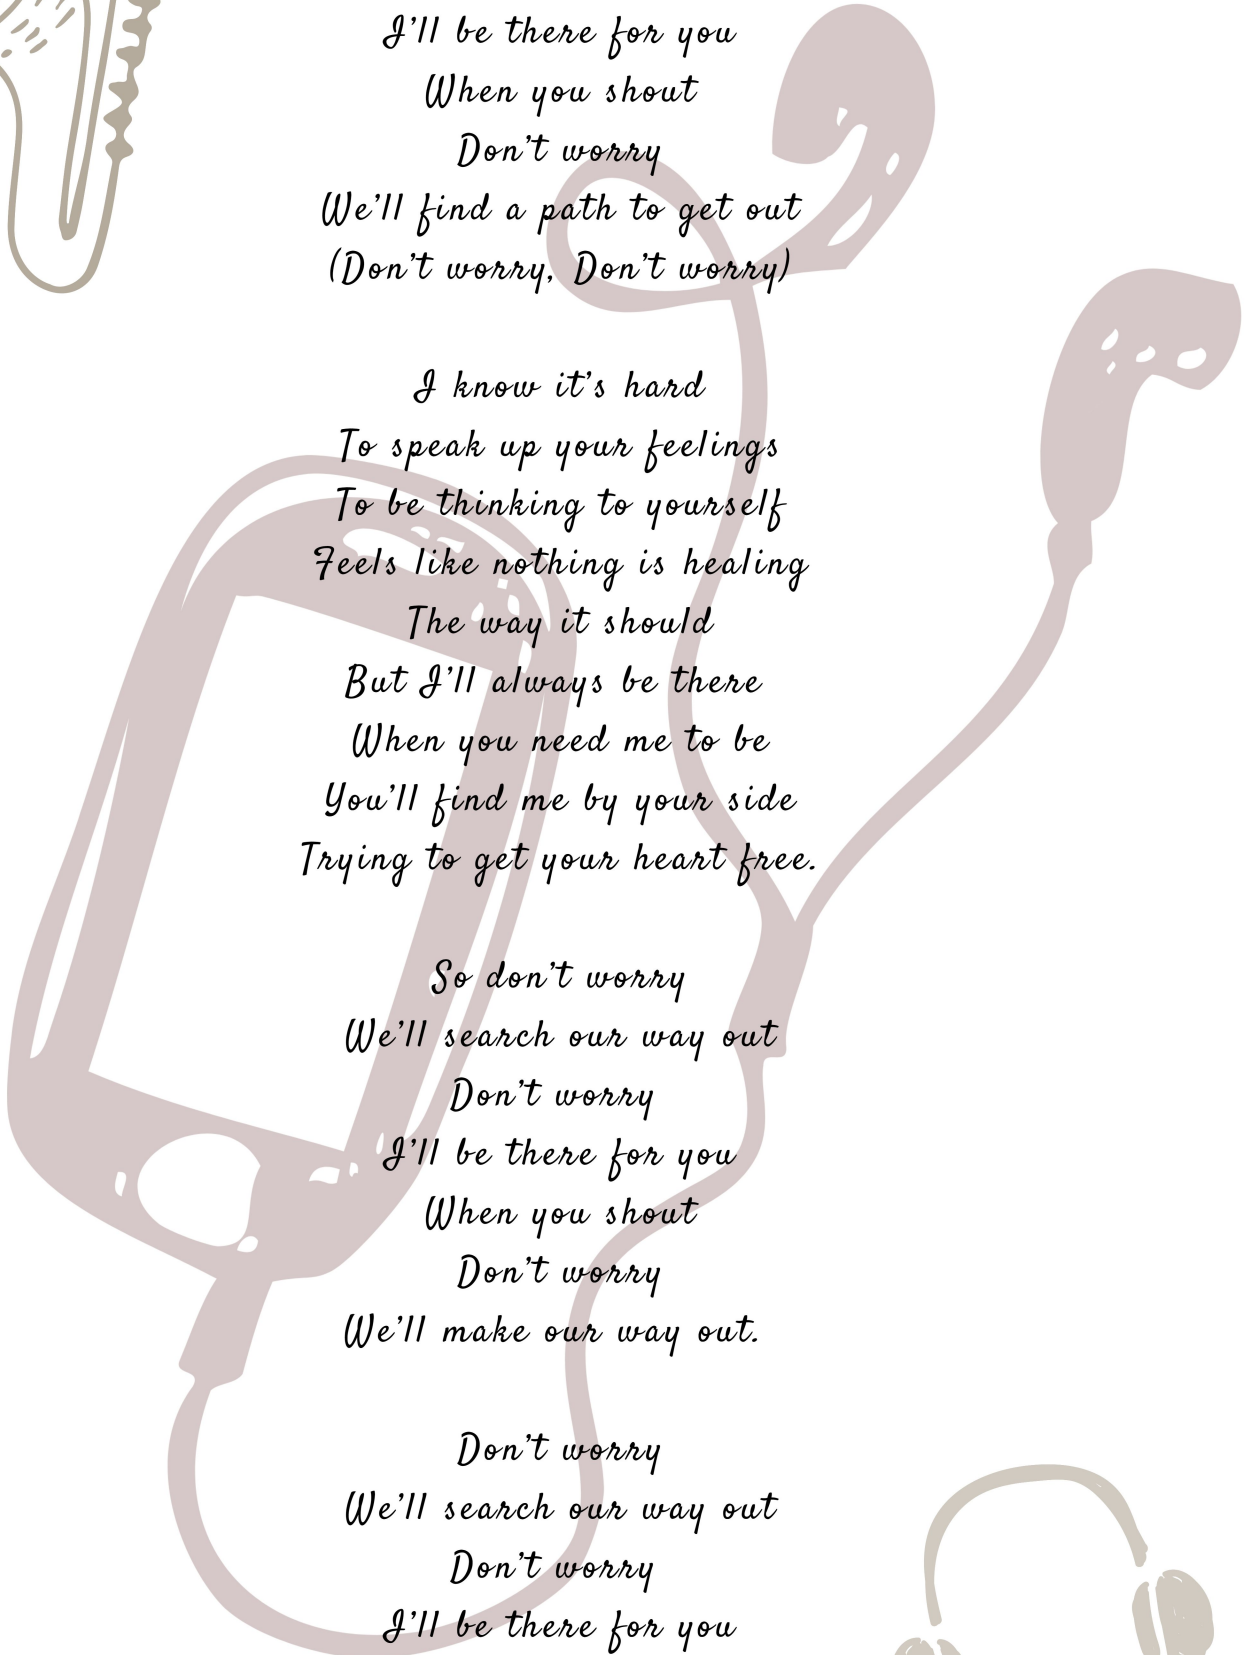 I'll be there for you
When you shout
Don't worry
We'll find a path to get out
(Don't worry, Don't worry)
I know it's hard
To speak up your feelings
To be thinking to yourself
Feels like nothing is healing
The way it should
But I'll always be there
When you need me to be
You'll find me by your side
Trying to get your heart free.
So don't worry
We'll search our way out
Don't worry
I'll be there for you
When you shout
Don't worry
We'll make our way out.
Don't worry
We'll search our way out
Don't worry
I'll be there for you